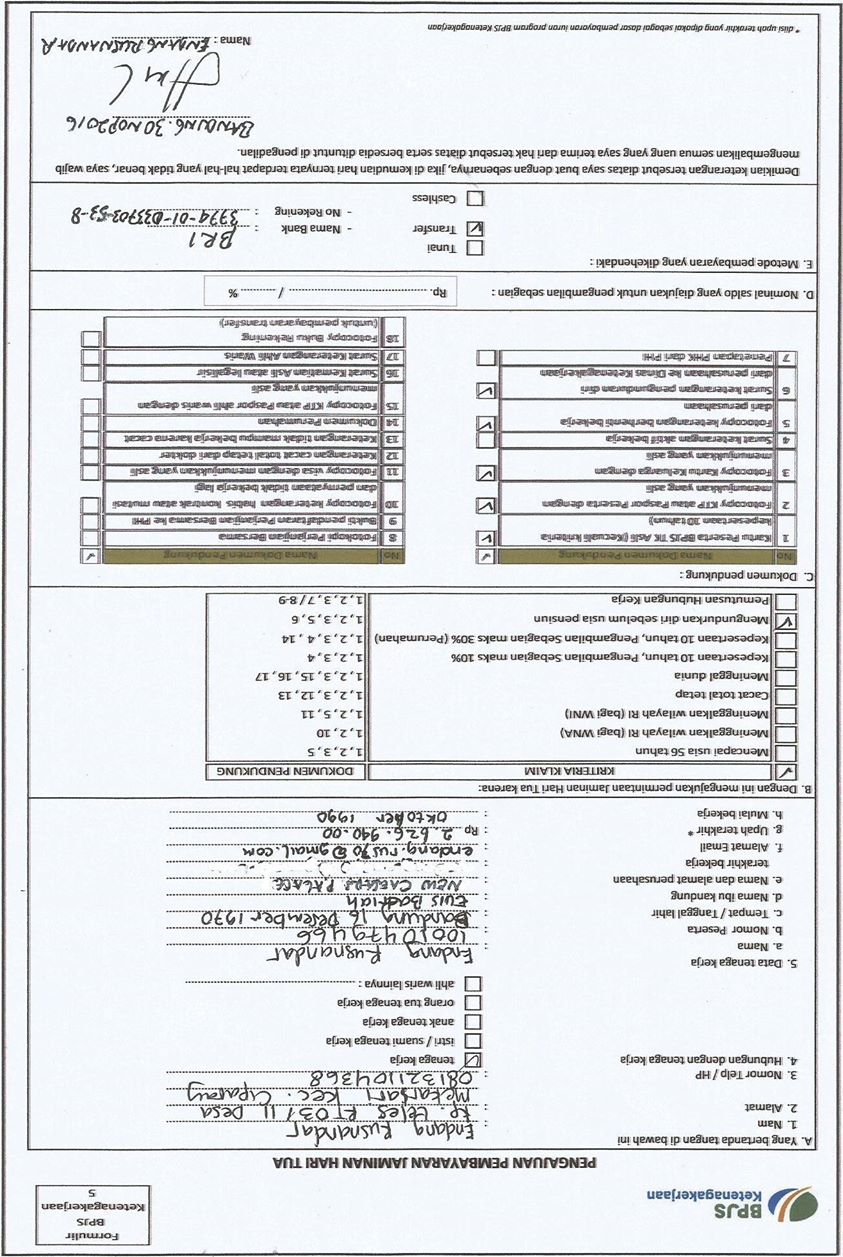 BPJS
Ketenagakerjaan
Formulir
BPJS
Ketenagakerjaan
5
PENGAJUAN PEMBAYARAN JAMINAN HARI TUA
A. Yang bertanda tangan di bawah ini
1. Nam Endang Rusnandar
2. Alamat Kp. teles RT 03/11 Desa
Mekarsari Kec. Ciparay
3. Nomor Telp / HP 081321104368
4. Hubungan dengan tenaga kerja tenaga kerja
istri / suami tenaga kerja
anak tenaga kerja
orang tua tenaga kerja
ahli waris lainnya :
5. Data tenaga kerja
a. Nama Endang Rusnandar
b. Nomor Peserta 10010479466
c. Tempat / Tanggal lahir Bandung 16 Desember 1970
d. Nama ibu kandung Euis Badriah
e. Nama dan alamat perusahaan NEW PALACE
terakhir bekerja
f. Alamat Email endang.rus70@gmail.com
g. Upah terakhir * Rp 2.626.940.00
h. Mulai bekerja Oktober 1990
B. Dengan ini mengajukan permintaan Jaminan Hari Tua karena:
✓ KRITERIA KLAIM DOKUMEN PENDUKUNG
Mencapai usia 56 tahun 1, 2, 3, 5
Meninggalkan wilayah RI (bagi WNA) 1, 2, 10
Meninggalkan wilayah RI (bagi WNI) 1, 2, 5, 11
Cacat total tetap 1, 2, 3, 12, 13
Meninggal dunia 1, 2, 3, 15, 16, 17
Kepesertaan 10 tahun, Pengambilan Sebagian maks 10% 1, 2, 3, 4
Kepesertaan 10 tahun, Pengambilan Sebagian maks 30% (Perumahan) 1, 2, 3, 4, 14
✓ Mengundurkan diri sebelum usia pensiun 1, 2, 3, 5, 6
Pemutusan Hubungan Kerja 1, 2, 3, 7 / 8-9
C. Dokumen pendukung :
No Nama Dokumen Pendukung ✓
1 Kartu Peserta BPJS TK Asli (Kecuali kriteria ✓
kepesertaan 10 tahun)
2 Fotocopy KTP atau Paspor Peserta dengan ✓
menunjukkan yang asli
3 Fotocopy Kartu Keluarga dengan ✓
menunjukkan yang asli
4 Surat keterangan aktif bekerja
5 Fotocopy keterangan berhenti bekerja ✓
dari perusahaan
6 Surat keterangan pengunduran diri ✓
dari perusahaan ke Dinas Ketenagakerjaan
7 Penetapan PHK dari PHI
No Nama Dokumen Pendukung ✓
8 Fotokopi Perjanjian Bersama
9 Bukti pendaftaran Perjanjian Bersama ke PHI
10 Fotocopy keterangan habis kontrak atau mutasi
dan pernyataan tidak bekerja lagi
11 Fotocopy visa dengan menunjukkan yang asli
12 Keterangan cacat total tetap dari dokter
13 Keterangan tidak mampu bekerja karena cacat
14 Dokumen Perumahan
15 Fotocopy KTP atau Paspor ahli waris dengan
menunjukkan yang asli
16 Surat Kematian Asli atau legalisir
17 Surat Keterangan Ahli Waris
18 Fotocopy Buku Rekening
(untuk pembayaran transfer)
D. Nominal saldo yang diajukan untuk pengambilan sebagian : Rp. / %
E. Metode pembayaran yang dikehendaki :
Tunai
✓ Transfer - Nama Bank : BRI
- No Rekening : 3774-01-033703-53-8
Cashless
Demikian keterangan tersebut diatas saya buat dengan sebenarnya, jika di kemudian hari ternyata terdapat hal-hal yang tidak benar, saya wajib
mengembalikan semua uang yang saya terima dari hak tersebut diatas serta bersedia dituntut di pengadilan.
BANDUNG. 30 NOP 2016
Nama : ENDANG RUSNANDAR
* diisi upah terakhir yang dipakai sebagai dasar pembayaran iuran program BPJS Ketenagakerjaan